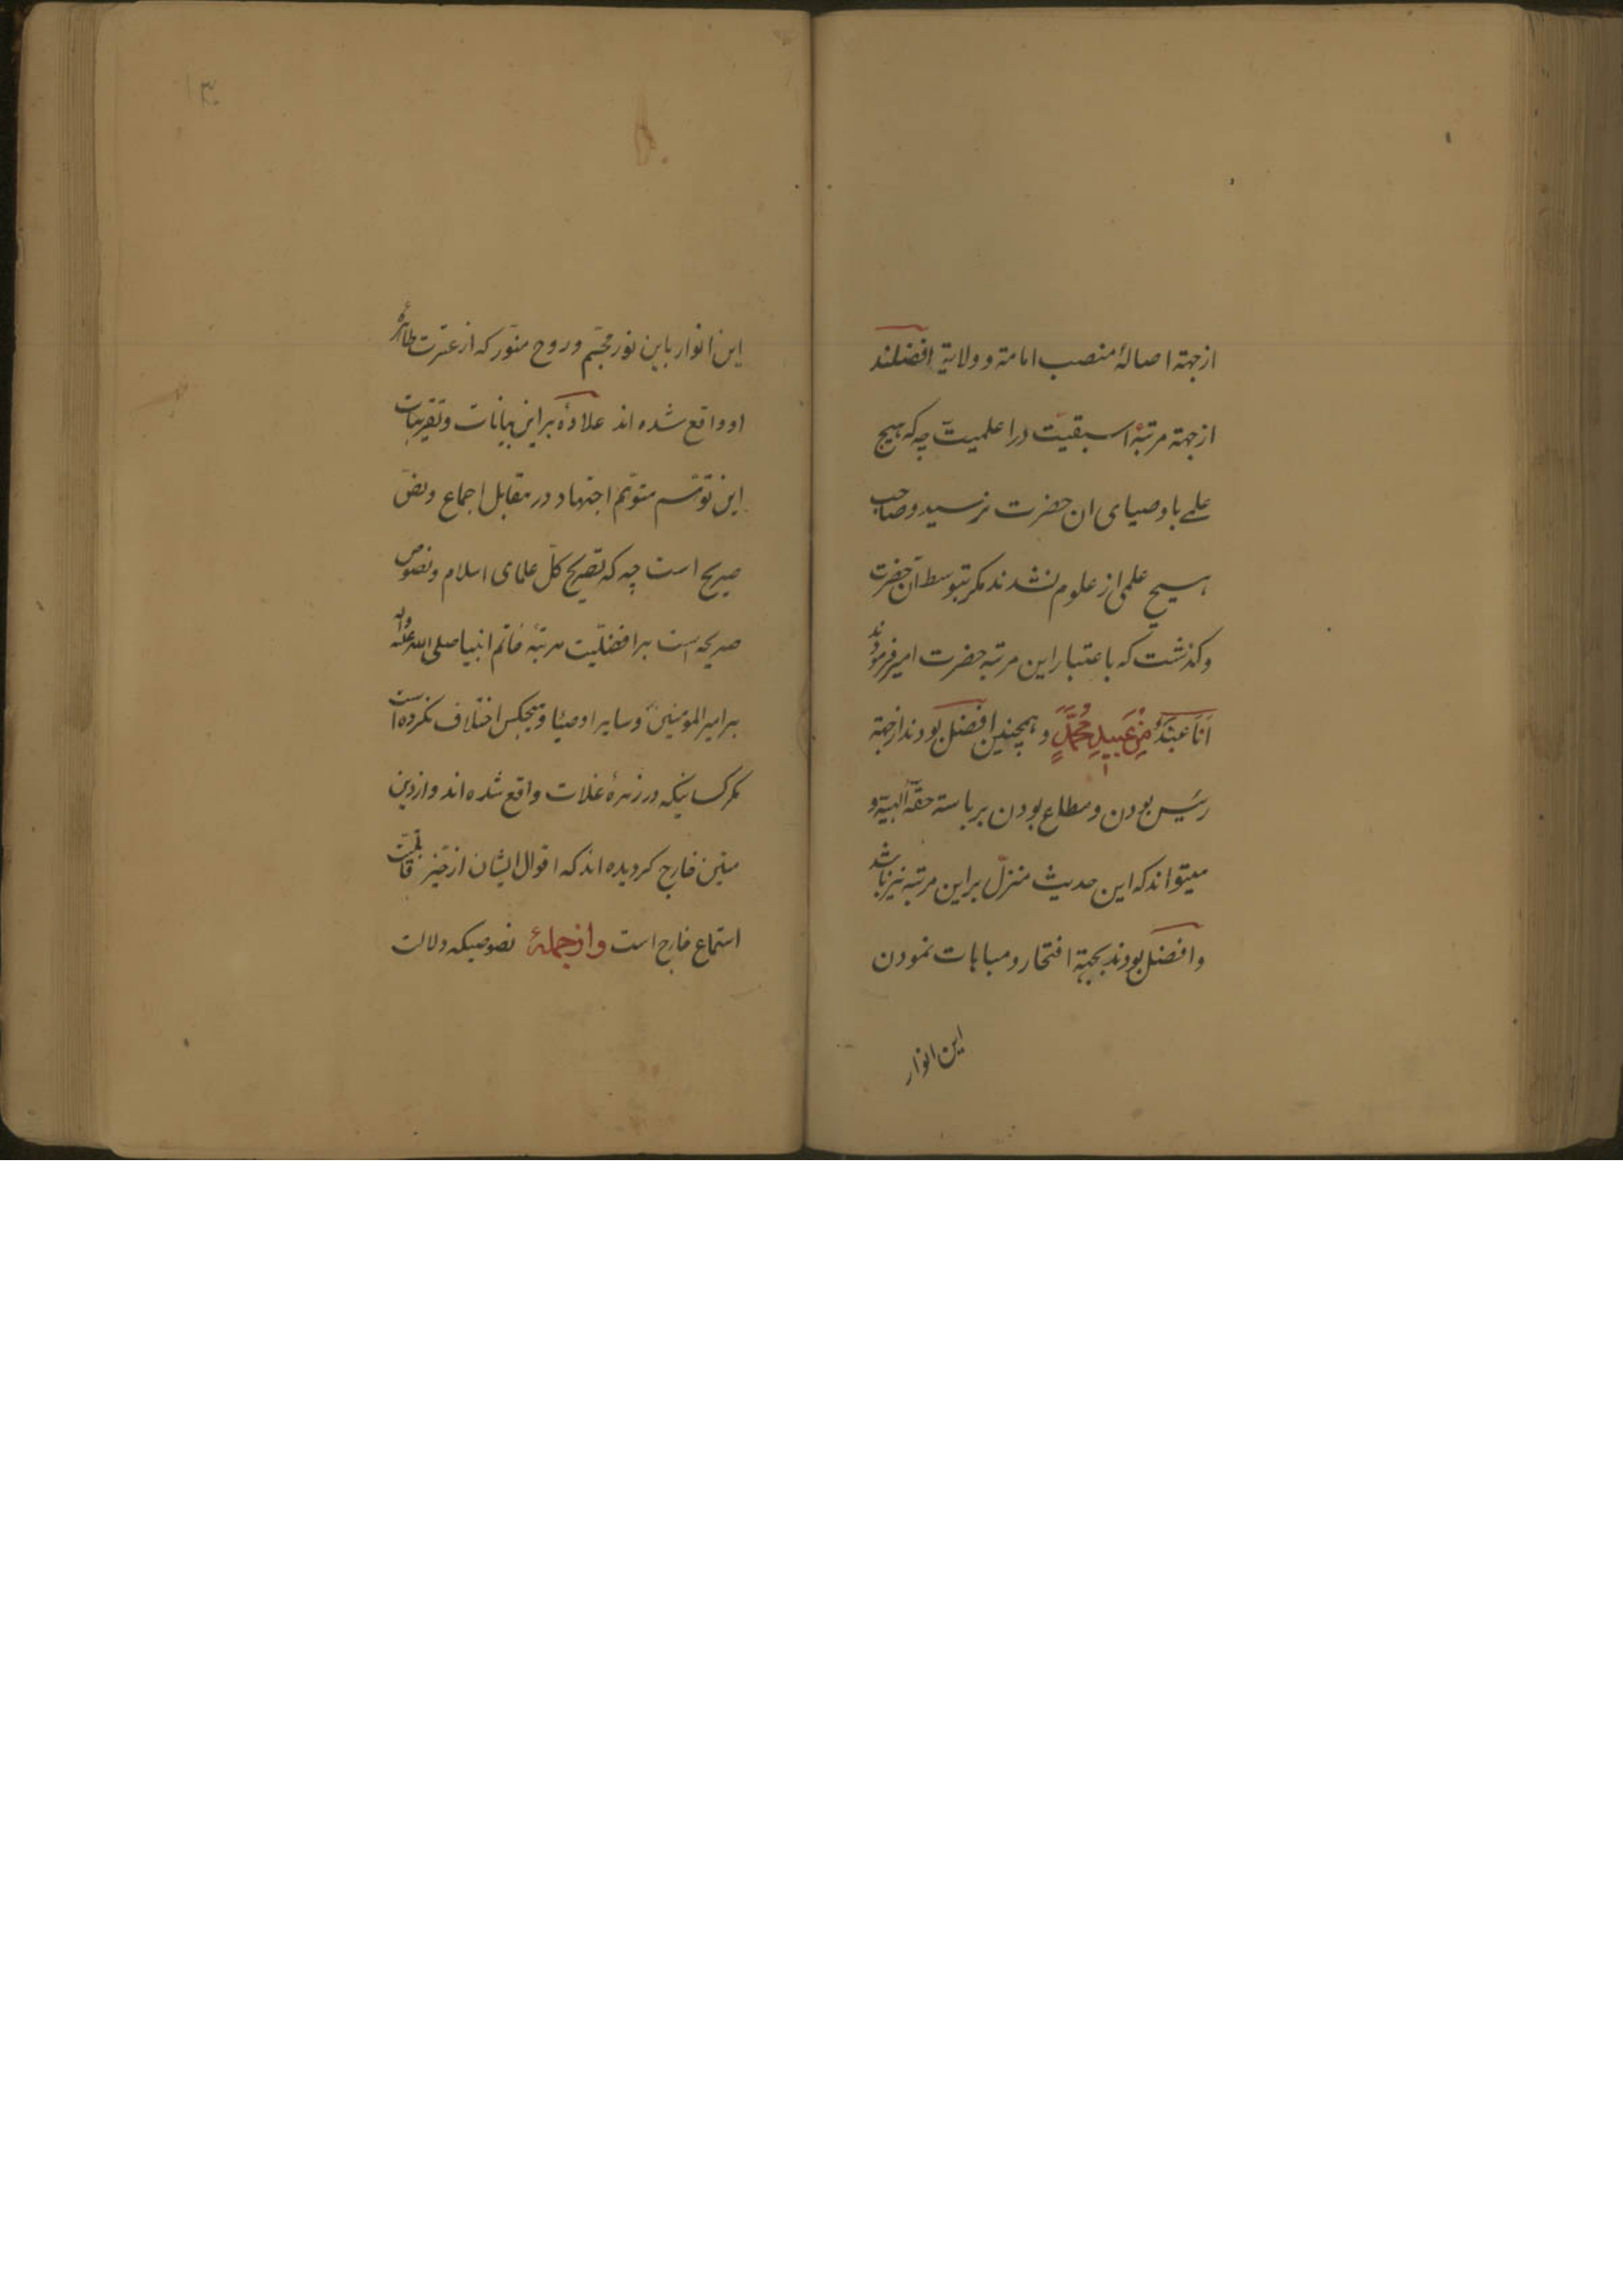 ازجهة اصالهٔ منصب امامة و ولایة افضلند
ازجهة مرتبهٔ اسبقیت در اعلمیت چه که هیچ
علمی باوصیای ان حضرت نرسید و صاحب
هیچ علمی از علوم نشدند مکر بتوسط آن حضرت
و کذشت که باعتبار این مرتبه حضرت امیر فرمودند
اَنَا عَبْدٌ مِنْ عَبیدِ مُحَمَّدٍ و همچنین افضل بودند ازجهة
رئیس بودن و مطاع بودن بریاسة حقهٔ الهیة و
میتواند که این حدیث منزل براین مرتبه نیز باشد
وافضل بودند بجهة افتخار و مباهات نمودن
این انوار
۱۳۰
این انوار باین نور مجسّم و روح منوّر که از عترت طاهرهٔ
او واقع شده اند علاوهٔ براین بیانات و تقریبات
این توهّم متوهّم اجتهاد در مقابل اجماع و نصّ
صریح است چه که تصریح کل علمای اسلام و نصوص
صریحه است بر افضلّیت مرتبهٔ خاتم انبیا صلی الله علیه واله
بر امیرالمؤمنین و سایر اوصیا و هیچکس اختلاف نکرده است
مکر کسانیکه در زمرهٔ غلات واقع شده اند و از دین
مبین خارج کردیده اند که اقوال ایشان از حیّز قابلیّت
استماع خارج است وازجملهٔ نصوصیکه دلالت